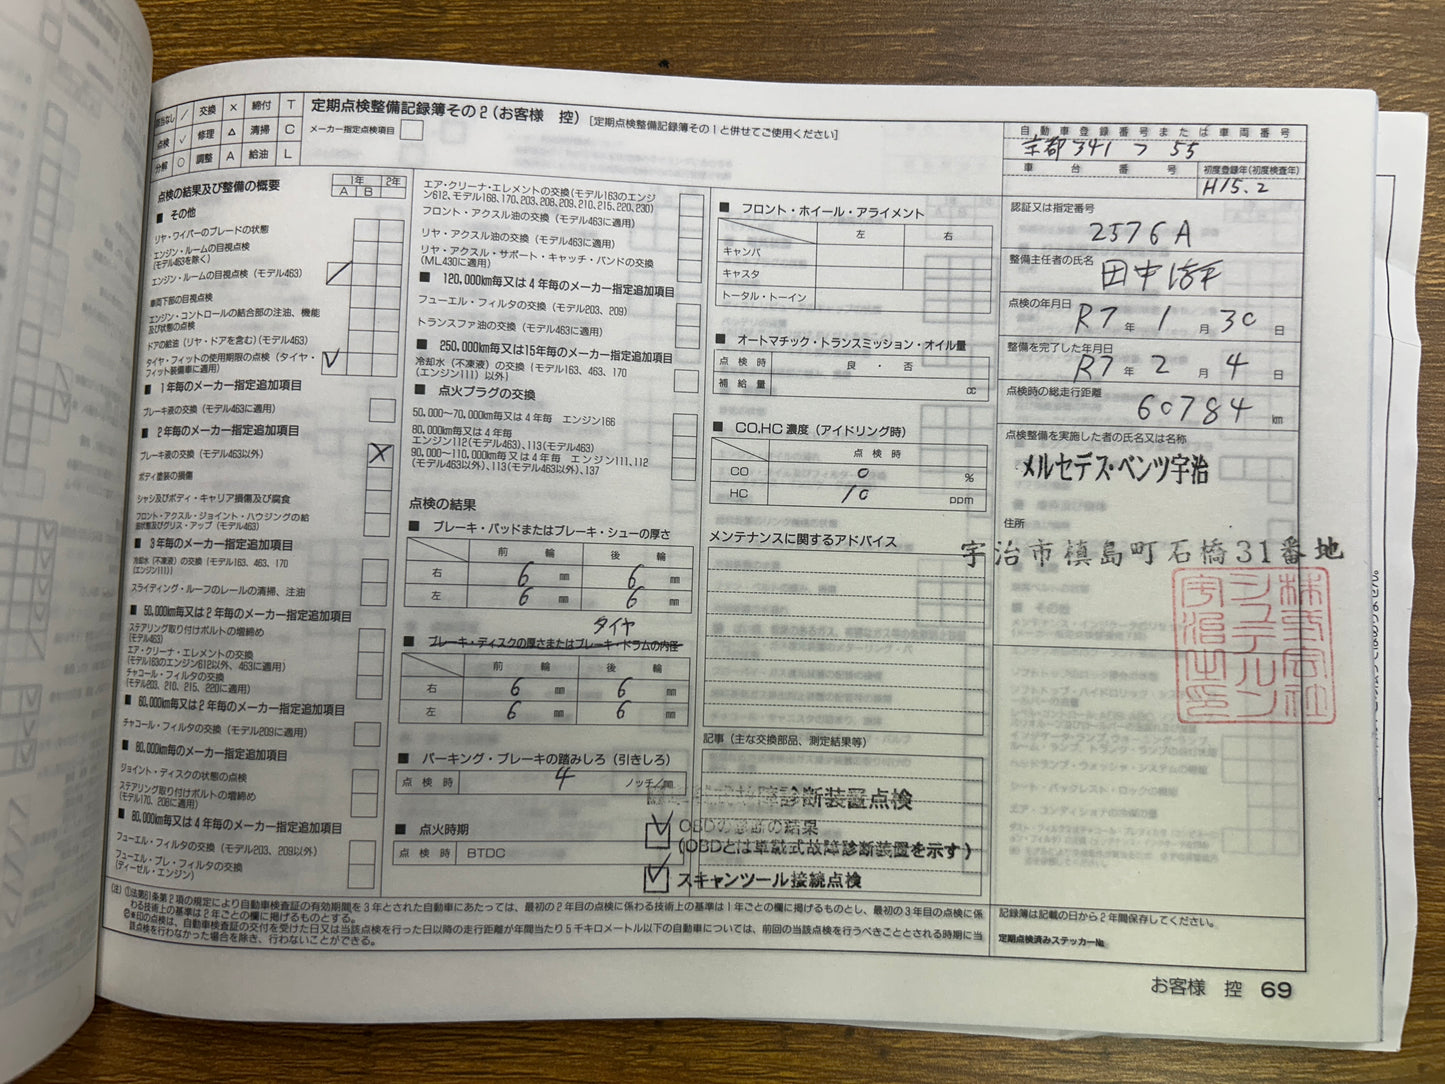 交換 × 締付 T
点検 ✓ 修理 △ 清掃 C
分解 ○ 調整 A 給油 L
定期点検整備記録簿その2(お客様 控)[定期点検整備記録簿その1と併せてご使用ください]
メーカー指定点検項目
点検の結果及び整備の概要
1年 2年
A B
■ その他
リヤ・ワイパーのブレードの状態
エンジン・ルームの目視点検
(モデル463を除く)
エンジン・ルームの目視点検(モデル463)
車両下部の目視点検
エンジン・コントロールの結合部の注油、機能
及び状態の点検
ドアの給油(リヤ・ドアを含む)(モデル463)
タイヤ・フィットの使用期限の点検(タイヤ・
フィット装備車に適用) ✓
■ 1年毎のメーカー指定追加項目
ブレーキ液の交換(モデル463に適用)
■ 2年毎のメーカー指定追加項目
ブレーキ液の交換(モデル463以外) ×
ボディ塗装の損傷
シャシ及びボディ・キャリア損傷及び腐食
フロント・アクスル・ジョイント・ハウジングの給
油状態及びグリス・アップ(モデル463)
■ 3年毎のメーカー指定追加項目
冷却水(不凍液)の交換(モデル163、463、170
(エンジン111))
スライディング・ルーフのレールの清掃、注油
■ 50,000km毎又は2年毎のメーカー指定追加項目
ステアリング取り付けボルトの増締め
(モデル463)
エア・クリーナ・エレメントの交換
(モデル163のエンジン612以外、463に適用)
チャコール・フィルタの交換
(モデル203、210、215、220に適用)
■ 60,000km毎又は2年毎のメーカー指定追加項目
チャコール・フィルタの交換(モデル209に適用)
■ 60,000km毎のメーカー指定追加項目
ジョイント・ディスクの状態の点検
ステアリング取り付けボルトの増締め
(モデル170、208に適用)
■ 60,000km毎又は4年毎のメーカー指定追加項目
フューエル・フィルタの交換(モデル203、209以外)
フューエル・プレ・フィルタの交換
(ディーゼル・エンジン)
エア・クリーナ・エレメントの交換(モデル163のエンジ
ン612、モデル168、170、203、208、209、210、215、220、230)
フロント・アクスル油の交換(モデル463に適用)
リヤ・アクスル油の交換(モデル463に適用)
リヤ・アクスル・サポート・キャッチ・バンドの交換
(ML430に適用)
■ 120,000km毎又は4年毎のメーカー指定追加項目
フューエル・フィルタの交換(モデル203、209)
トランスファ油の交換(モデル463に適用)
■ 250,000km毎又は15年毎のメーカー指定追加項目
冷却水(不凍液)の交換(モデル163、463、170
(エンジン111)以外)
■ 点火プラグの交換
50,000〜70,000km毎又は4年毎 エンジン166
80,000km毎又は4年毎
エンジン112(モデル463)、113(モデル463)
90,000〜110,000km毎又は4年毎 エンジン111、112
(モデル463以外)、113(モデル463以外)、137
点検の結果
■ ブレーキ・パッドまたはブレーキ・シューの厚さ
前 輪 後 輪
右 6 ㎜ 6 ㎜
左 6 ㎜ 6 ㎜
タイヤ
■ ブレーキ・ディスクの厚さまたはブレーキ・ドラムの内径
前 輪 後 輪
右 6 ㎜ 6 ㎜
左 6 ㎜ 6 ㎜
■ パーキング・ブレーキの踏みしろ(引きしろ)
点 検 時 4 ノッチ/㎜
■ 点火時期
点 検 時 BTDC
■ フロント・ホイール・アライメント
左 右
キャンバ
キャスタ
トータル・トーイン
■ オートマチック・トランスミッション・オイル量
点 検 時 良 ・ 否
補 給 量 cc
■ CO,HC濃度(アイドリング時)
点 検 時
CO 0 %
HC 10 ppm
メンテナンスに関するアドバイス
記事(主な交換部品、測定結果等)
故障診断装置点検
✓ OBDの診断の結果
(OBDとは車載式故障診断装置を示す)
✓ スキャンツール接続点検
自動車登録番号または車両番号
京都341 つ 55
車 台 番 号
初度登録年(初度検査年)
H15.2
認証又は指定番号
2576A
整備主任者の氏名
点検の年月日
R7 年 1 月 30 日
整備を完了した年月日
R7 年 2 月 4 日
点検時の総走行距離
60784 km
点検整備を実施した者の氏名又は名称
メルセデス・ベンツ宇治
住所
宇治市槙島町石橋31番地
株式会社
シュテルン
宇治之印
記録簿は記載の日から2年間保存してください。
定期点検済みステッカー№
(注)①法第61条第2項の規定により自動車検査証の有効期間を3年とされた自動車にあたっては、最初の2年目の点検に係わる技術上の基準は1年ごとの欄に掲げるものとし、最初の3年目の点検に係
わる技術上の基準は2年ごとの欄に掲げるものとする。
②※印の点検は、自動車検査証の交付を受けた日又は当該点検を行った日以降の走行距離が年間当たり5千キロメートル以下の自動車については、前回の当該点検を行うべきこととされる時期に当
該点検を行わなかった場合を除き、行わないことができる。
お客様 控 69